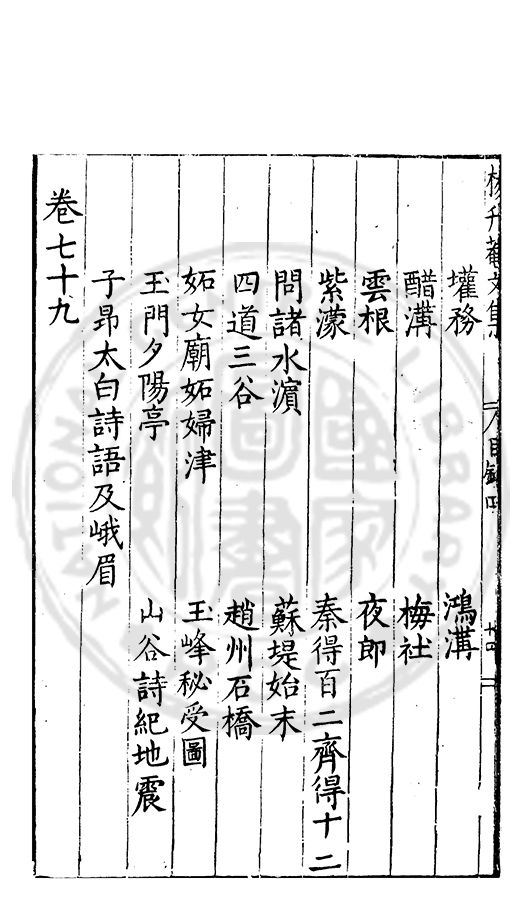 楊升菴文集 目錄四 十四
壠務 鴻溝
醋溝 梅社
雲根 夜郎
紫濛 秦得百二齊得十二
問諸水濱 蘇堤始末
四道三谷 趙州石橋
妬女廟妬婦津 玉峰秘受圖
玉門夕陽亭 山谷詩紀地震
子昂太白詩語及峨眉
卷七十九